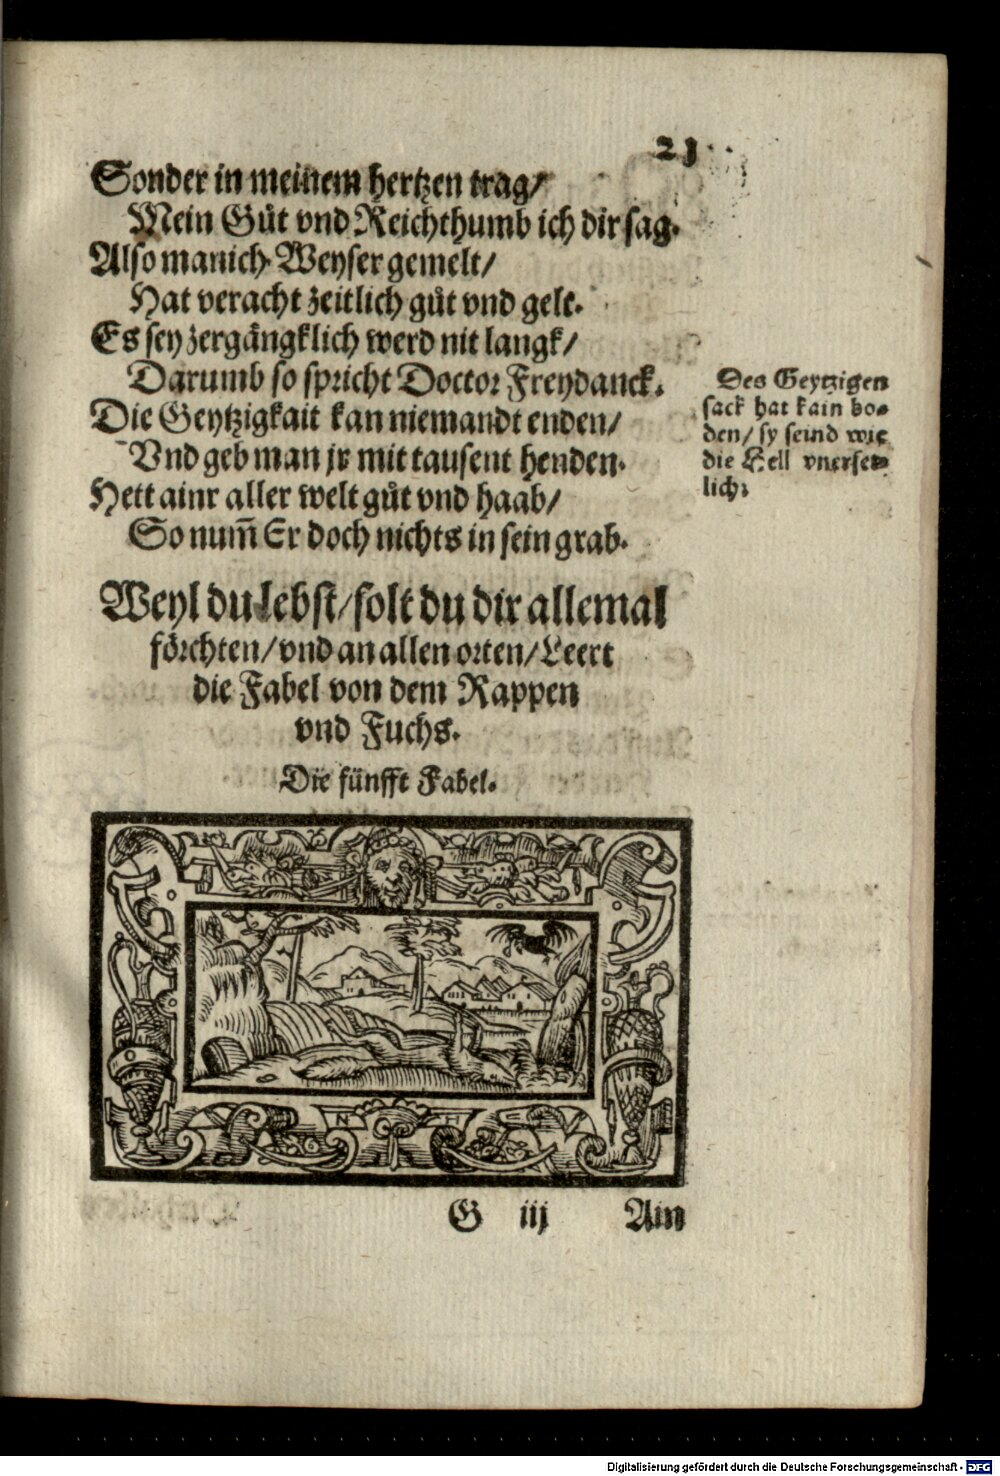 21
Sonder in meinem hertzen trag/
Mein Gůt vnd Reichthumb ich dir sag.
Also manich Weyser gemelt/
Hat veracht zeitlich gůt vnd gelt.
Es sey zergängklich werd nit langk/
Darumb so spricht Doctor Freydanck.
Die Geytzigkait kan niemandt enden/
Vnd geb man jr mit tausent henden.
Hett ainr aller welt gůt vnd haab/
So num̃ Er doch nichts in sein grab.
Des Geytzigen
sack hat kain bo-
den/ sy seind wie
die Hell vnerset-
lich.
Weyl du lebst/ solt du dir allemal
förchten/ vnd an allen orten/ Leert
die Fabel von dem Rappen
vnd Fuchs.
Die fünfft Fabel.
G iij Ain
Digitalisierung gefördert durch die Deutsche Forschungsgemeinschaft - DFG